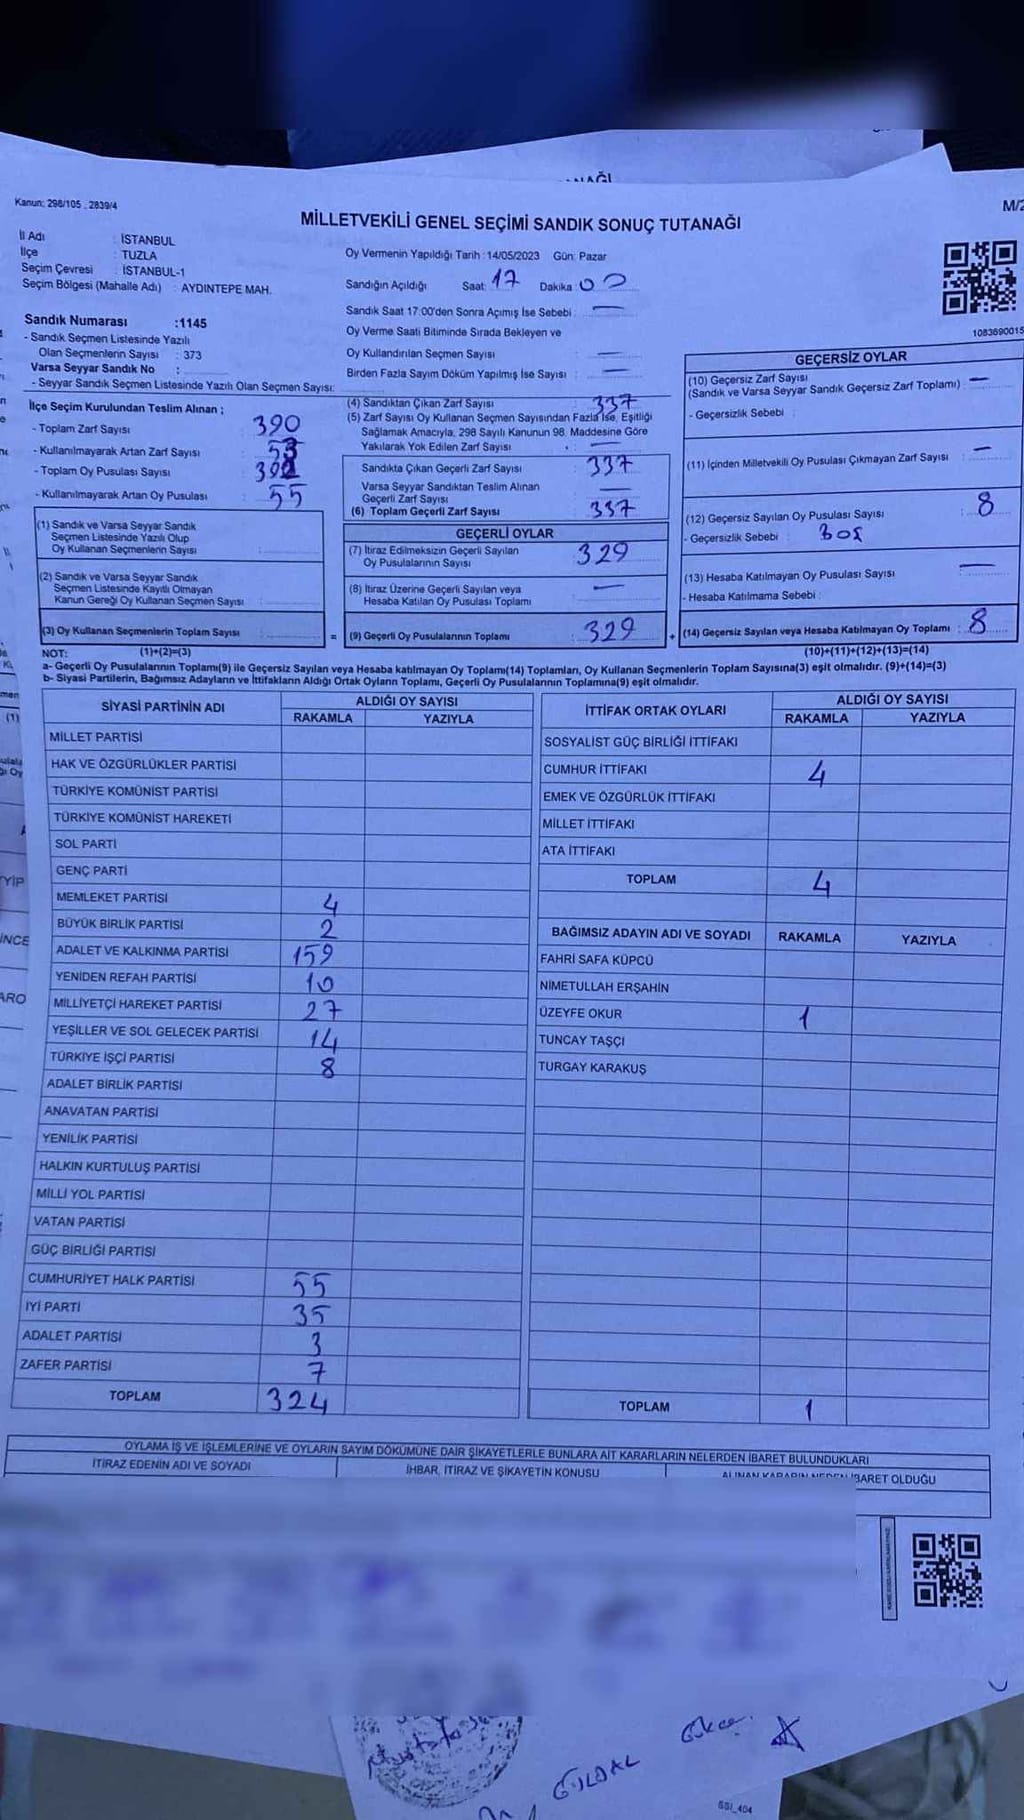 Kanun: 298/105 , 2839/4
M/2
MİLLETVEKİLİ GENEL SEÇİMİ SANDIK SONUÇ TUTANAĞI
İl Adı : İSTANBUL
İlçe : TUZLA
Seçim Çevresi : İSTANBUL-1
Seçim Bölgesi (Mahalle Adı) : AYDINTEPE MAH.
Oy Vermenin Yapıldığı Tarih : 14/05/2023 Gün: Pazar
Sandığın Açıldığı Saat: 17 Dakika : 00
Sandık Saat 17:00'den Sonra Açımış İse Sebebi : —
Oy Verme Saati Bitiminde Sırada Bekleyen ve
Oy Kullandırılan Seçmen Sayısı : —
Birden Fazla Sayım Döküm Yapılmış İse Sayısı : —
Sandık Numarası :1145
- Sandık Seçmen Listesinde Yazılı
Olan Seçmenlerin Sayısı : 373
Varsa Seyyar Sandık No :
- Seyyar Sandık Seçmen Listesinde Yazılı Olan Seçmen Sayısı:
İlçe Seçim Kurulundan Teslim Alınan ;
- Toplam Zarf Sayısı : 390
- Kullanılmayarak Artan Zarf Sayısı : 53
- Toplam Oy Pusulası Sayısı : 392
- Kullanılmayarak Artan Oy Pusulası : 55
(1) Sandık ve Varsa Seyyar Sandık
Seçmen Listesinde Yazılı Olup
Oy Kullanan Seçmenlerin Sayısı :
(2) Sandık ve Varsa Seyyar Sandık
Seçmen Listesinde Kayıtlı Olmayan
Kanun Gereği Oy Kullanan Seçmen Sayısı :
(3) Oy Kullanan Seçmenlerin Toplam Sayısı :
(4) Sandıktan Çıkan Zarf Sayısı : 337
(5) Zarf Sayısı Oy Kullanan Seçmen Sayısından Fazla İse, Eşitliği
Sağlamak Amacıyla, 298 Sayılı Kanunun 98. Maddesine Göre
Yakılarak Yok Edilen Zarf Sayısı : —
Sandıkta Çıkan Geçerli Zarf Sayısı : 337
Varsa Seyyar Sandıktan Teslim Alınan
Geçerli Zarf Sayısı : —
(6) Toplam Geçerli Zarf Sayısı : 337
GEÇERLİ OYLAR
(7) İtiraz Edilmeksizin Geçerli Sayılan
Oy Pusulalarının Sayısı : 329
(8) İtiraz Üzerine Geçerli Sayılan veya
Hesaba Katılan Oy Pusulası Toplamı : —
= (9) Geçerli Oy Pusulalarının Toplamı : 329
1083690015
GEÇERSİZ OYLAR
(10) Geçersiz Zarf Sayısı
(Sandık ve Varsa Seyyar Sandık Geçersiz Zarf Toplamı) : —
- Geçersizlik Sebebi :
(11) İçinden Milletvekili Oy Pusulası Çıkmayan Zarf Sayısı : —
(12) Geçersiz Sayılan Oy Pusulası Sayısı : 8
- Geçersizlik Sebebi : BOŞ
(13) Hesaba Katılmayan Oy Pusulası Sayısı : —
- Hesaba Katılmama Sebebi :
+ (14) Geçersiz Sayılan veya Hesaba Katılmayan Oy Toplamı : 8
NOT: (1)+(2)=(3) (10)+(11)+(12)+(13)=(14)
a- Geçerli Oy Pusulalarının Toplamı(9) ile Geçersiz Sayılan veya Hesaba katılmayan Oy Toplamı(14) Toplamları, Oy Kullanan Seçmenlerin Toplam Sayısına(3) eşit olmalıdır. (9)+(14)=(3)
b- Siyasi Partilerin, Bağımsız Adayların ve İttifakların Aldığı Ortak Oyların Toplamı, Geçerli Oy Pusulalarının Toplamına(9) eşit olmalıdır.
SİYASİ PARTİNİN ADI ALDIĞI OY SAYISI
RAKAMLA YAZIYLA
MİLLET PARTİSİ
HAK VE ÖZGÜRLÜKLER PARTİSİ
TÜRKİYE KOMÜNİST PARTİSİ
TÜRKİYE KOMÜNİST HAREKETİ
SOL PARTİ
GENÇ PARTİ
MEMLEKET PARTİSİ 4
BÜYÜK BİRLİK PARTİSİ 2
ADALET VE KALKINMA PARTİSİ 159
YENİDEN REFAH PARTİSİ 10
MİLLİYETÇİ HAREKET PARTİSİ 27
YEŞİLLER VE SOL GELECEK PARTİSİ 14
TÜRKİYE İŞÇİ PARTİSİ 8
ADALET BİRLİK PARTİSİ
ANAVATAN PARTİSİ
YENİLİK PARTİSİ
HALKIN KURTULUŞ PARTİSİ
MİLLİ YOL PARTİSİ
VATAN PARTİSİ
GÜÇ BİRLİĞİ PARTİSİ
CUMHURİYET HALK PARTİSİ 55
İYİ PARTİ 35
ADALET PARTİSİ 3
ZAFER PARTİSİ 7
TOPLAM 324
İTTİFAK ORTAK OYLARI ALDIĞI OY SAYISI
RAKAMLA YAZIYLA
SOSYALİST GÜÇ BİRLİĞİ İTTİFAKI
CUMHUR İTTİFAKI 4
EMEK VE ÖZGÜRLÜK İTTİFAKI
MİLLET İTTİFAKI
ATA İTTİFAKI
TOPLAM 4
BAĞIMSIZ ADAYIN ADI VE SOYADI RAKAMLA YAZIYLA
FAHRİ SAFA KÜPCÜ
NİMETULLAH ERŞAHİN
ÜZEYFE OKUR 1
TUNCAY TAŞÇI
TURGAY KARAKUŞ
TOPLAM 1
OYLAMA İŞ VE İŞLEMLERİNE VE OYLARIN SAYIM DÖKÜMÜNE DAİR ŞİKAYETLERLE BUNLARA AİT KARARLARIN NELERDEN İBARET BULUNDUKLARI
İTİRAZ EDENİN ADI VE SOYADI İHBAR, İTİRAZ VE ŞİKAYETİN KONUSU ALINAN KARARIN NEDEN İBARET OLDUĞU
GÜLDAL